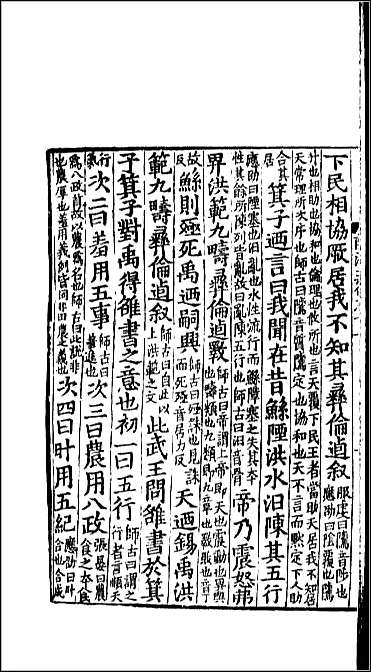 下民相協厥居我不知其彝倫逌敘服虔曰隲音陟也應劭曰陰覆也隲
升也相助也協和也倫理也攸所也言天覆下民王者當助天居我不知居天常理所次序也師古曰隲音質隲定也協和也天不言而黙定下人助
合其居箕子迺言曰我聞在昔鯀陻洪水汨陳其五行
應劭曰陻塞也汨亂也水性流行而鯀障塞之失其本性其餘所陳列皆亂故曰亂陳五行也師古曰汨音骨帝乃震怒弗
畀洪範九疇彝倫逌斁師古曰帝謂上帝即天也震動也畀與也疇類也九類即九章也斁敗也音丁
故反鯀則殛死禹迺嗣興師古曰殛誅也見誅而死殛音居力反天迺錫禹洪
範九疇彝倫逌敘師古曰自此以上洪範之文此武王問雒書於箕
子箕子對禹得雒書之意也初一曰五行師古曰謂之行者言順天
行氣次二曰羞用五事師古曰羞進也次三曰農用八政張晏曰農食之本食
爲八政首故以農爲名也師古曰此說非也農厚也羞用義例皆同非田農之義也次四曰叶用五紀應劭曰叶合也合成